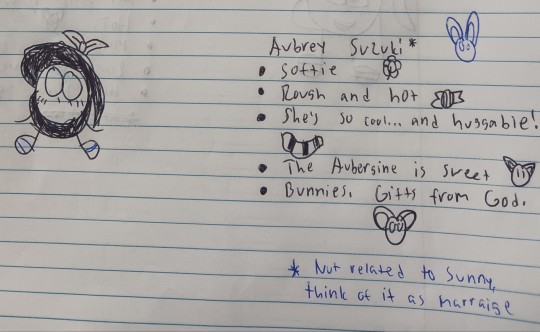 Aubrey Suzuki*
• Softie
• Rough and hot
• She's so cool... and huggable!
• The Aubergine is sweet
• Bunnies. Gifts from God.
* Not related to Sunny,
think of it as marraige